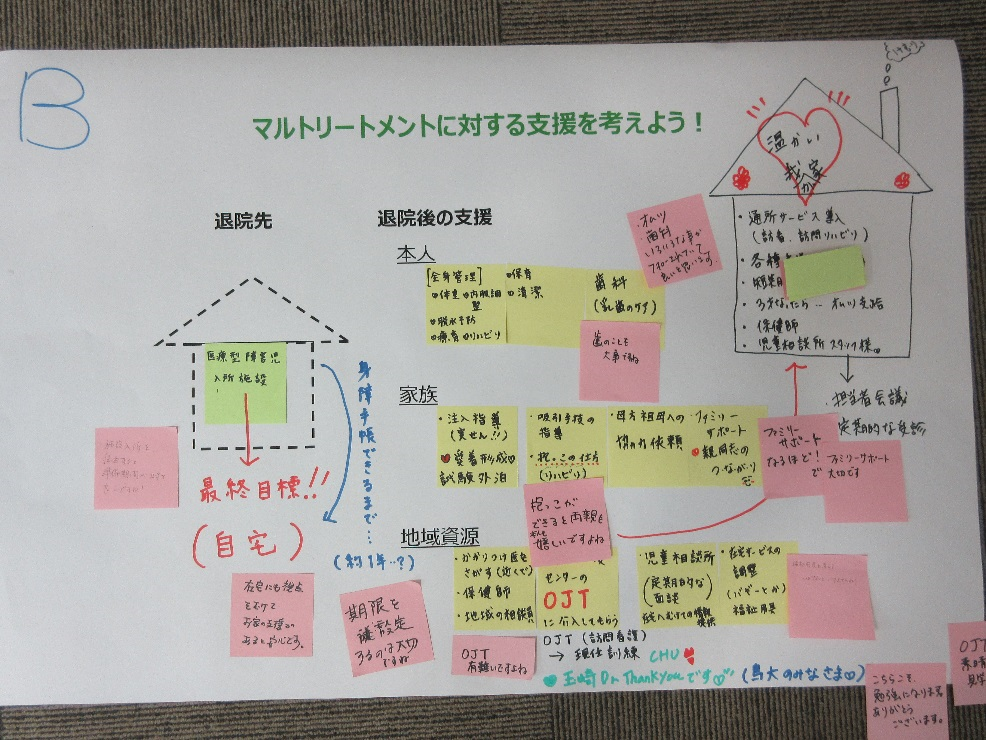 B
マルトリートメントに対する支援を考えよう！
温かい
我が家
退院先
退院後の支援
本人
[全身管理]
体重 内服調整
脱水予防
療育 リハビリ
保育
清潔
歯科
(乳歯のケア)
歯のことも
大事ですね
オムツ
歯科
・通所サービス導入
(訪看、訪問リハビリ)
・各種
オムツ支給
・保健師
・児童相談所スタッフ様。
・担当者会議
定期的な受診
医療型障害児
入所施設
最終目標!!
(自宅)
身障手帳できるまで…
(約1年…?)
家族
・注入指導
(実せん!!)
愛着形成
試験外泊
・吸引手技の
指導
・抱っこの仕方
(リハビリ)
・母方祖母への
協力依頼
・ファミリー
サポート
親同志の
つながり
ファミリー
サポート
なるほど!
で
ファミリーサポート
大切です
抱っこが
できると両親も
嬉しいですよね
地域資源
・かかりつけ医を
さがす(近くで)
・保健師
・地域の相談員
センターの
OJT
に介入してもらう
・児童相談所
(定期的な)
面談
・在宅サービスの
調整
(バギーとか)
福祉用具
OJT (訪問看護)
→ 現任訓練 CHU
玉崎Dr Thank youです
(鳥大のみなさま)
在宅にも視点
をむけて
期限を
設定
するのは大切
ですね
OJT
有難いですよね
こちらこそ
勉強になりました
ありがとう
ございます。
OJT
見学